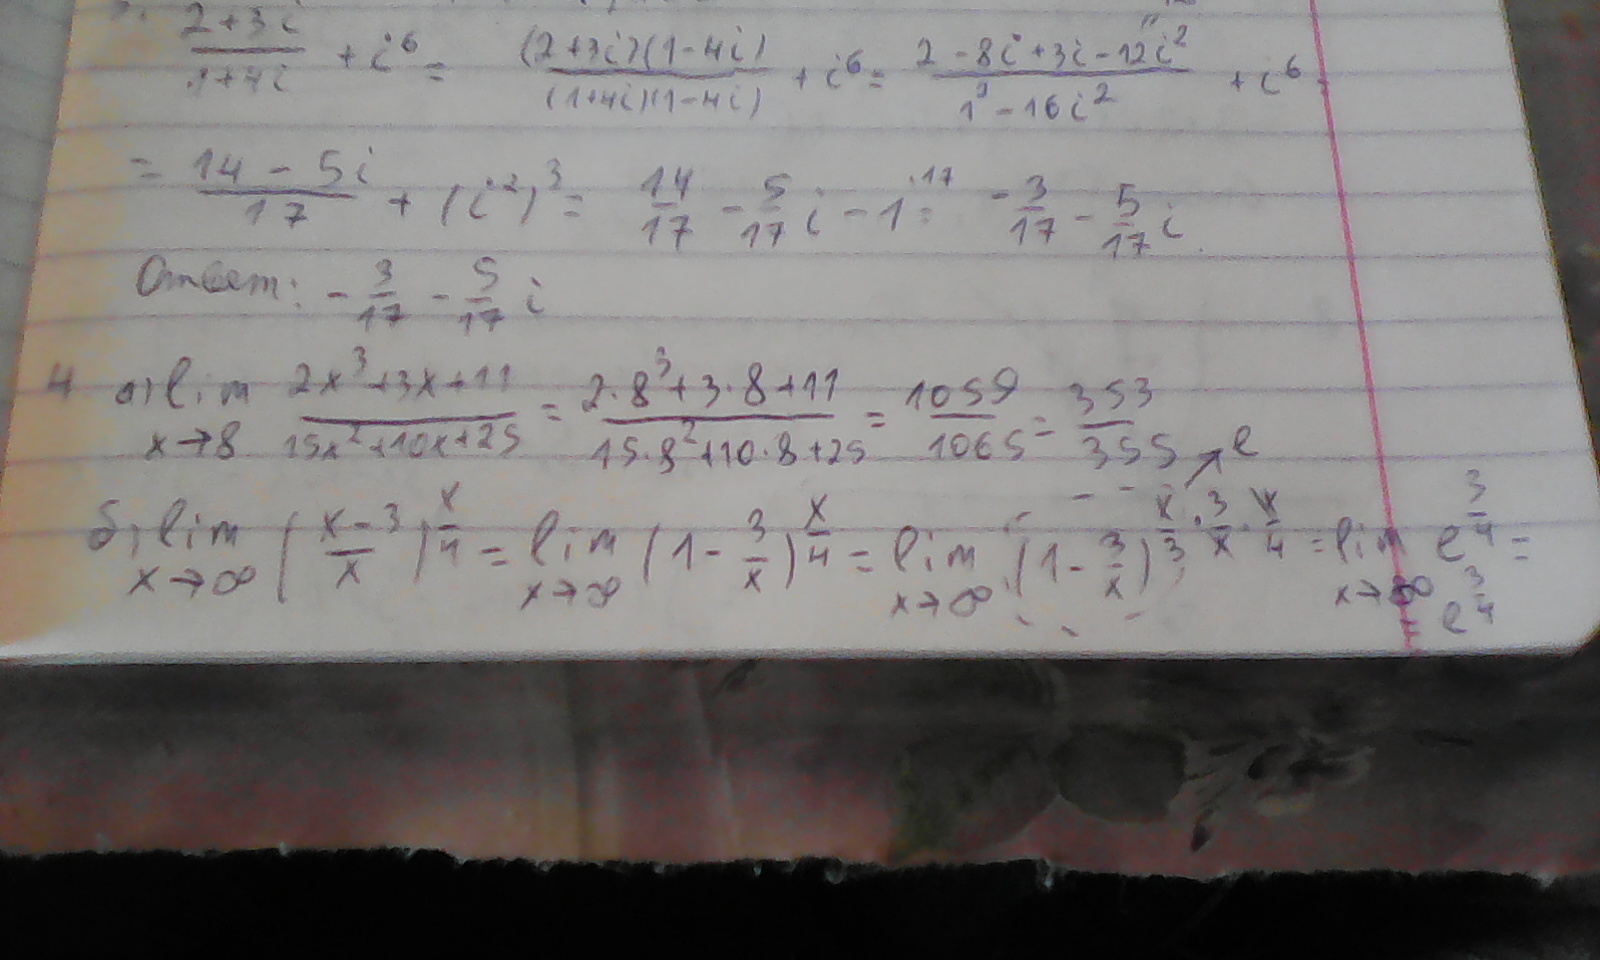 (2+3i)/(1+4i) + i^6 = ((2+3i)(1-4i))/((1+4i)(1-4i)) + i^6 = (2-8i+3i-12i^2)/(1^2-16i^2) + i^6 =
= (14-5i)/17 + (i^2)^3 = 14/17 - 5/17 i - 1^{·17} = -3/17 - 5/17 i.
Ответ: -3/17 - 5/17 i
4 а) lim x→8 (2x^3+3x+11)/(15x^2+10x+25) = (2·8^3+3·8+11)/(15·8^2+10·8+25) = 1059/1065 = 353/355
б) lim x→∞ ((x-3)/x)^{x/4} = lim x→∞ (1-3/x)^{x/4} = lim x→∞ (1-3/x)^{x/3·3/x·x/4} → e = lim x→∞ e^{3/4} =
= e^{3/4}